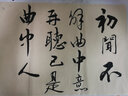 初聞不
解曲中意
再聽已是
曲中人